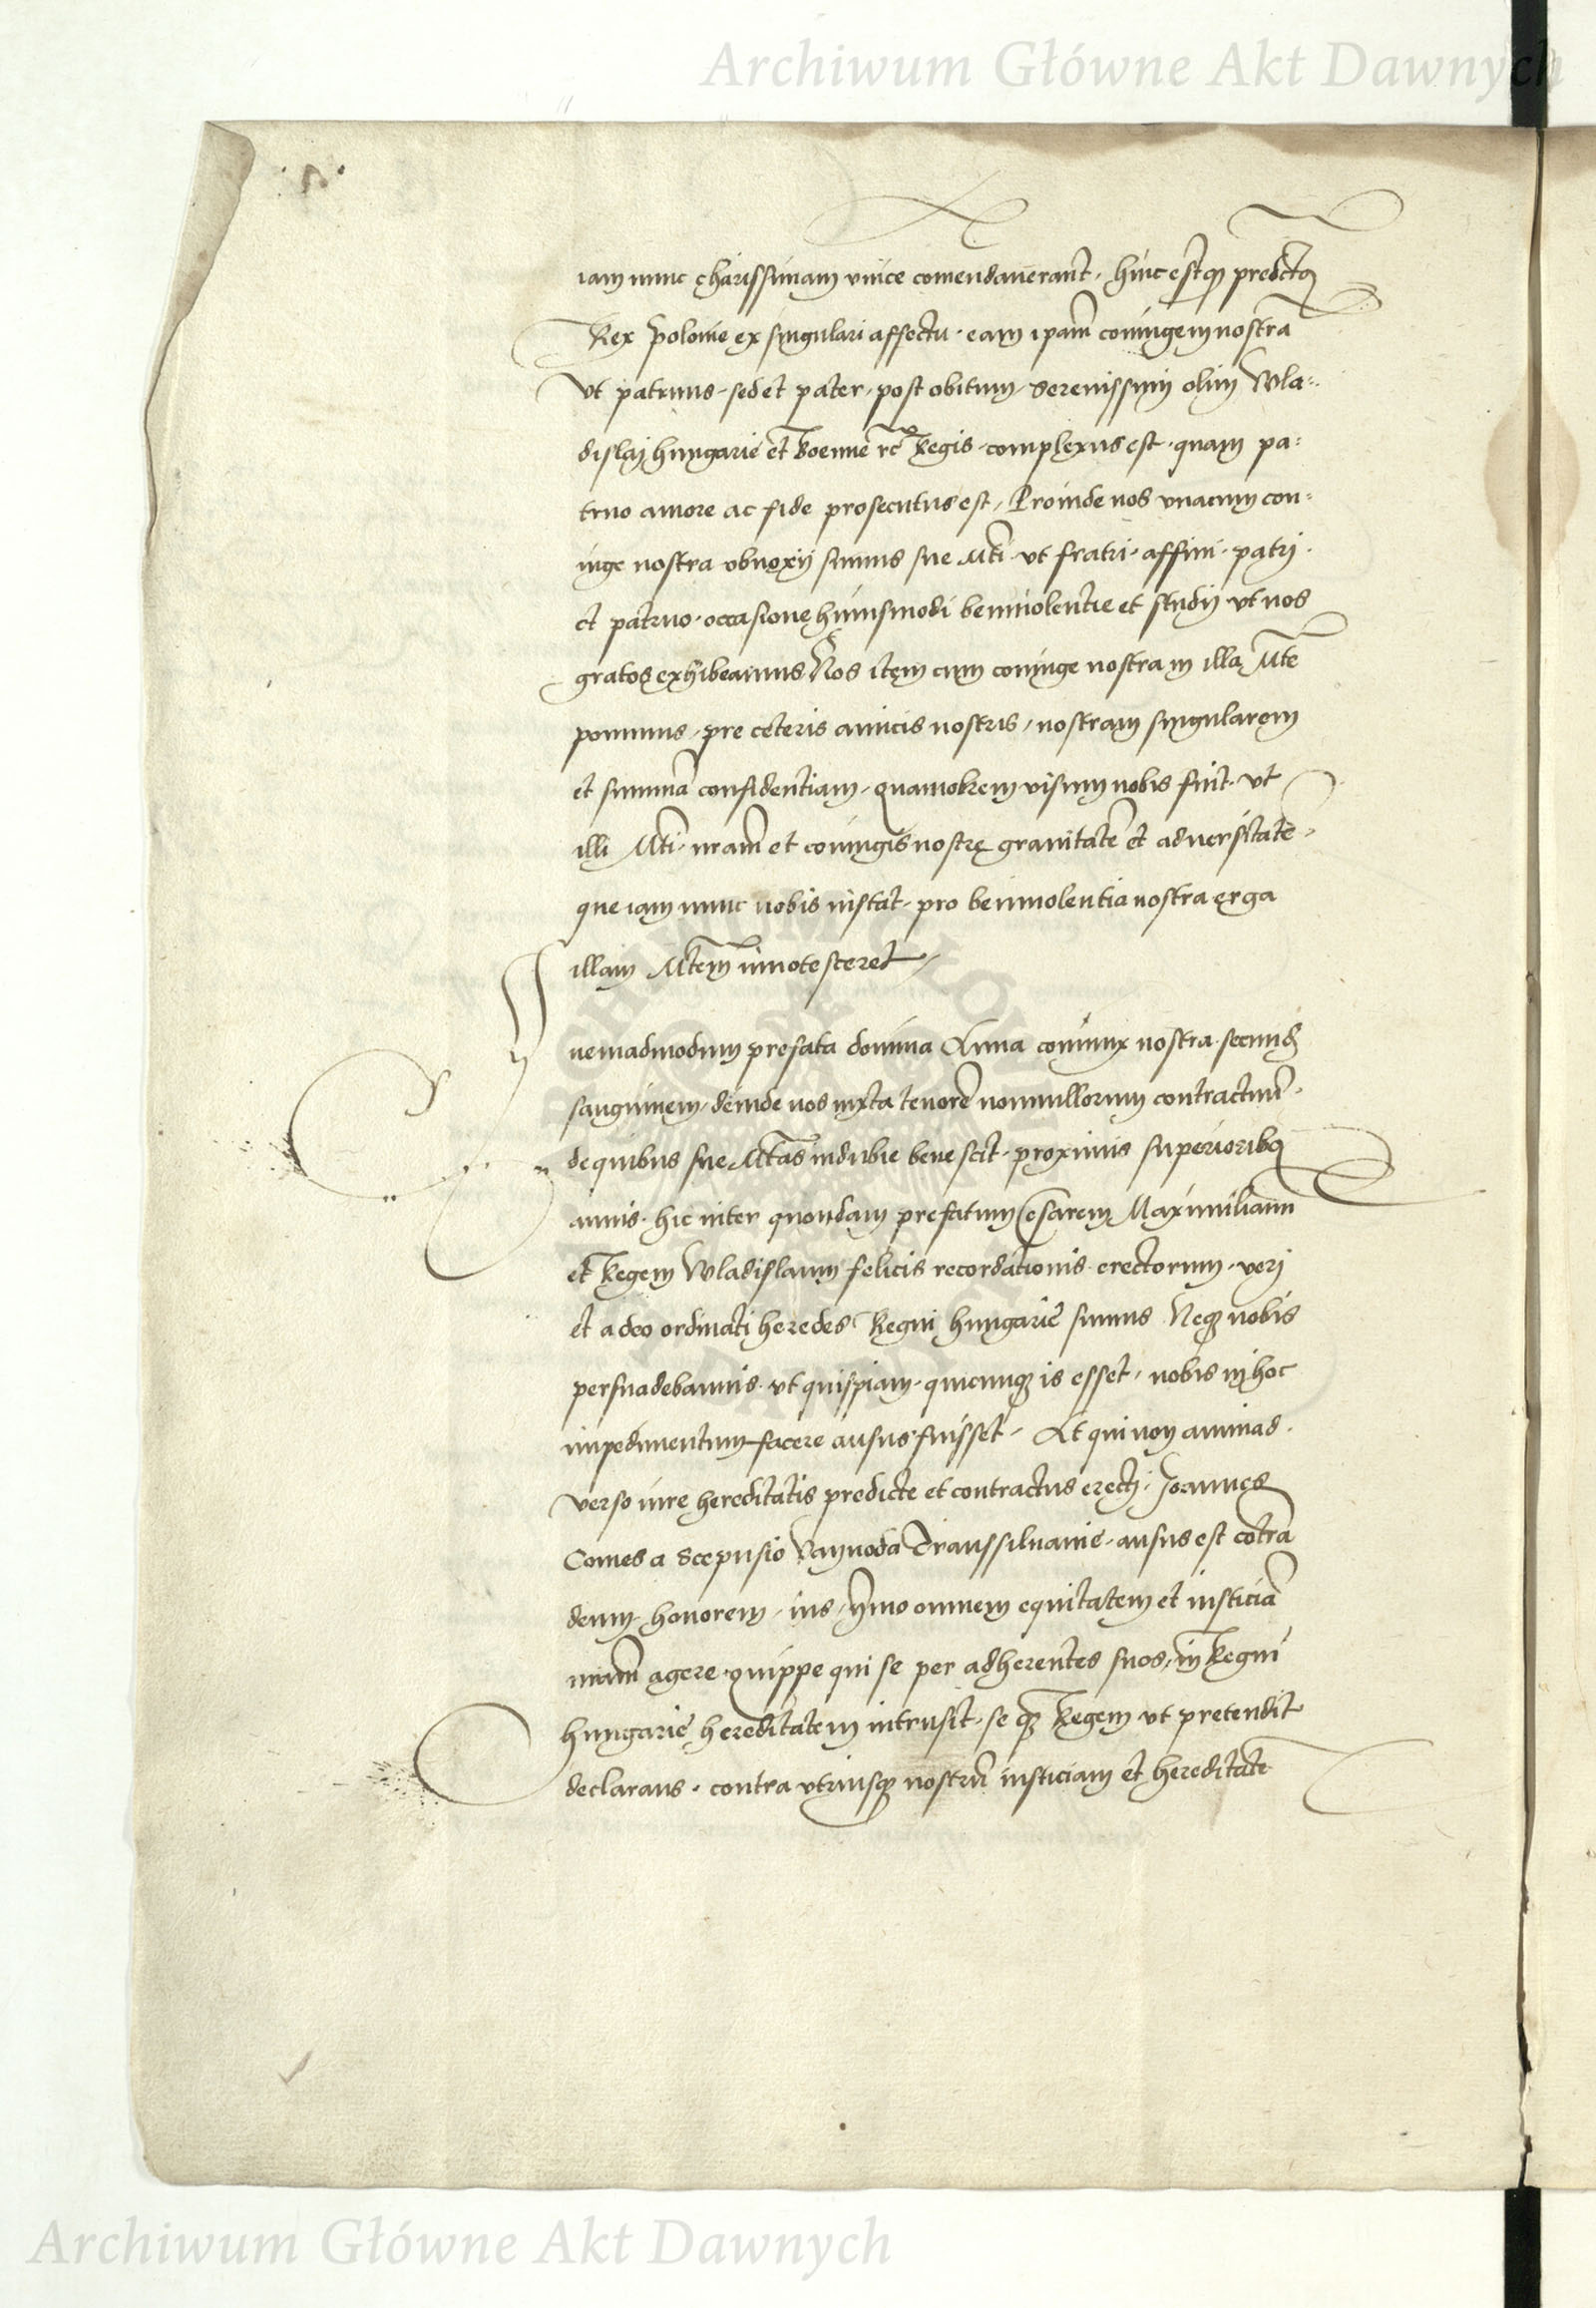 Archiwum Główne Akt Dawnych
iam nunc charissimam vnice comendauerant. hinc est q̃ predictq
Rex Polonie ex singulari affectu. eam ipam̃ coniugem nostrã
vt patruus. sed et pater. post obitum. Serenissimi olim Wla=
dislaj hungarie et boemie rc̃ Regis. complexus est. quam pa=
truo amore ac fide prosecutus est. Proinde nos vnacum con=
iuge nostra obnoxij sumus sue Mti. vt fratri. affini. patri.
et patruo. occasione huiusmodi beniuolentie et studij vt nos
gratos exhibeamus Nos item cum coniuge nostra in illa Mte
ponimus. pre ceteris amicis nostris, nostram singularem
et summã confidentiam. quamobrem visum nobis fuit. vt
illi Mti. nram̃ et coniugis nostrę grauitatẽ et aduersitatẽ
que iam nunc nobis instat. pro beniuolentia nostra erga
illam Mtem innotesceret.
Quemadmodum prefata domina Anna coniunx nostra secundũ
sanguinem. deinde nos iuxta tenorẽ nonnullorum contractuũ.
de quibus sue Mtas indubie bene scit. proximis superioribq
annis. hic inter quondam prefatum Cesarem Maximilianũ
et Regem Wladislaum felicis recordationis erectorum. veri
et a deo ordinati heredes Regni hungarie sumus Neq̃ nobis
persuadebamus. vt quispiam. quicunq̃ is esset. nobis in hoc
impedimentum facere ausus fuisset. At qui non animad.
verso iure hereditatis predicte et contractus erecti. Joannes
Comes a Scepusio Vayuoda Transsiluanie. ausus est cotrã
deum. honorem. ius. ymo omnem equitatem et iusticiã
nram̃ agere. quippe qui se per adherentes suos. in Regni
hungarie hereditatem intrusit. se q̃ Regem vt pretendit
declarans. contra vtriusq̃ nostrũ iusticiam et hereditatẽ
Archiwum Główne Akt Dawnych